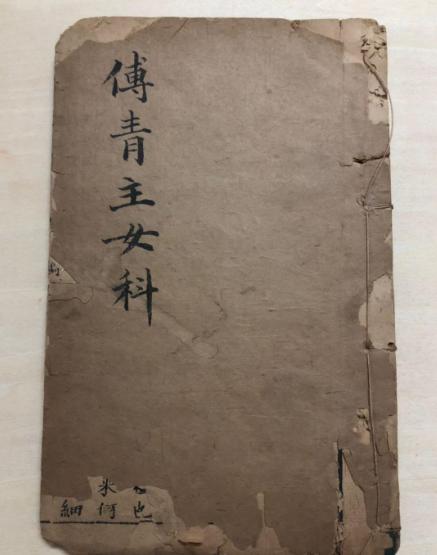 傅青主女科
也
米何
細